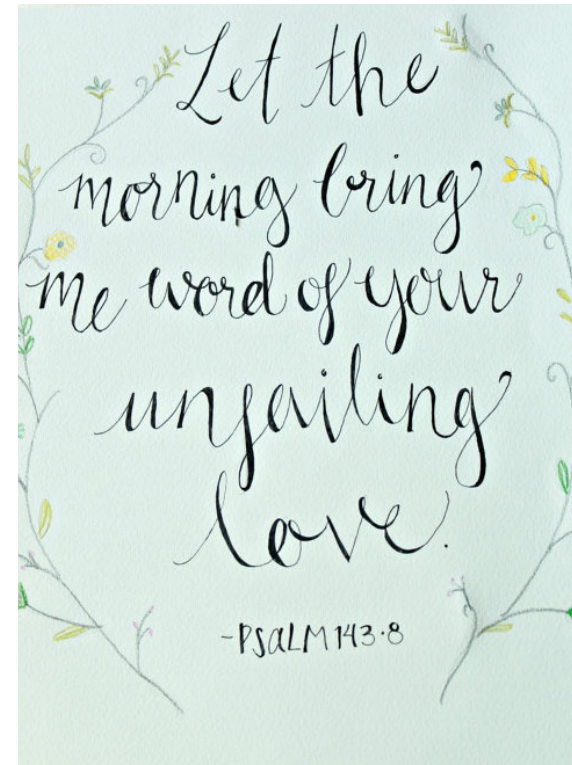 Let the
morning bring
me word of your
unfailing
love.
-PSALM 143:8